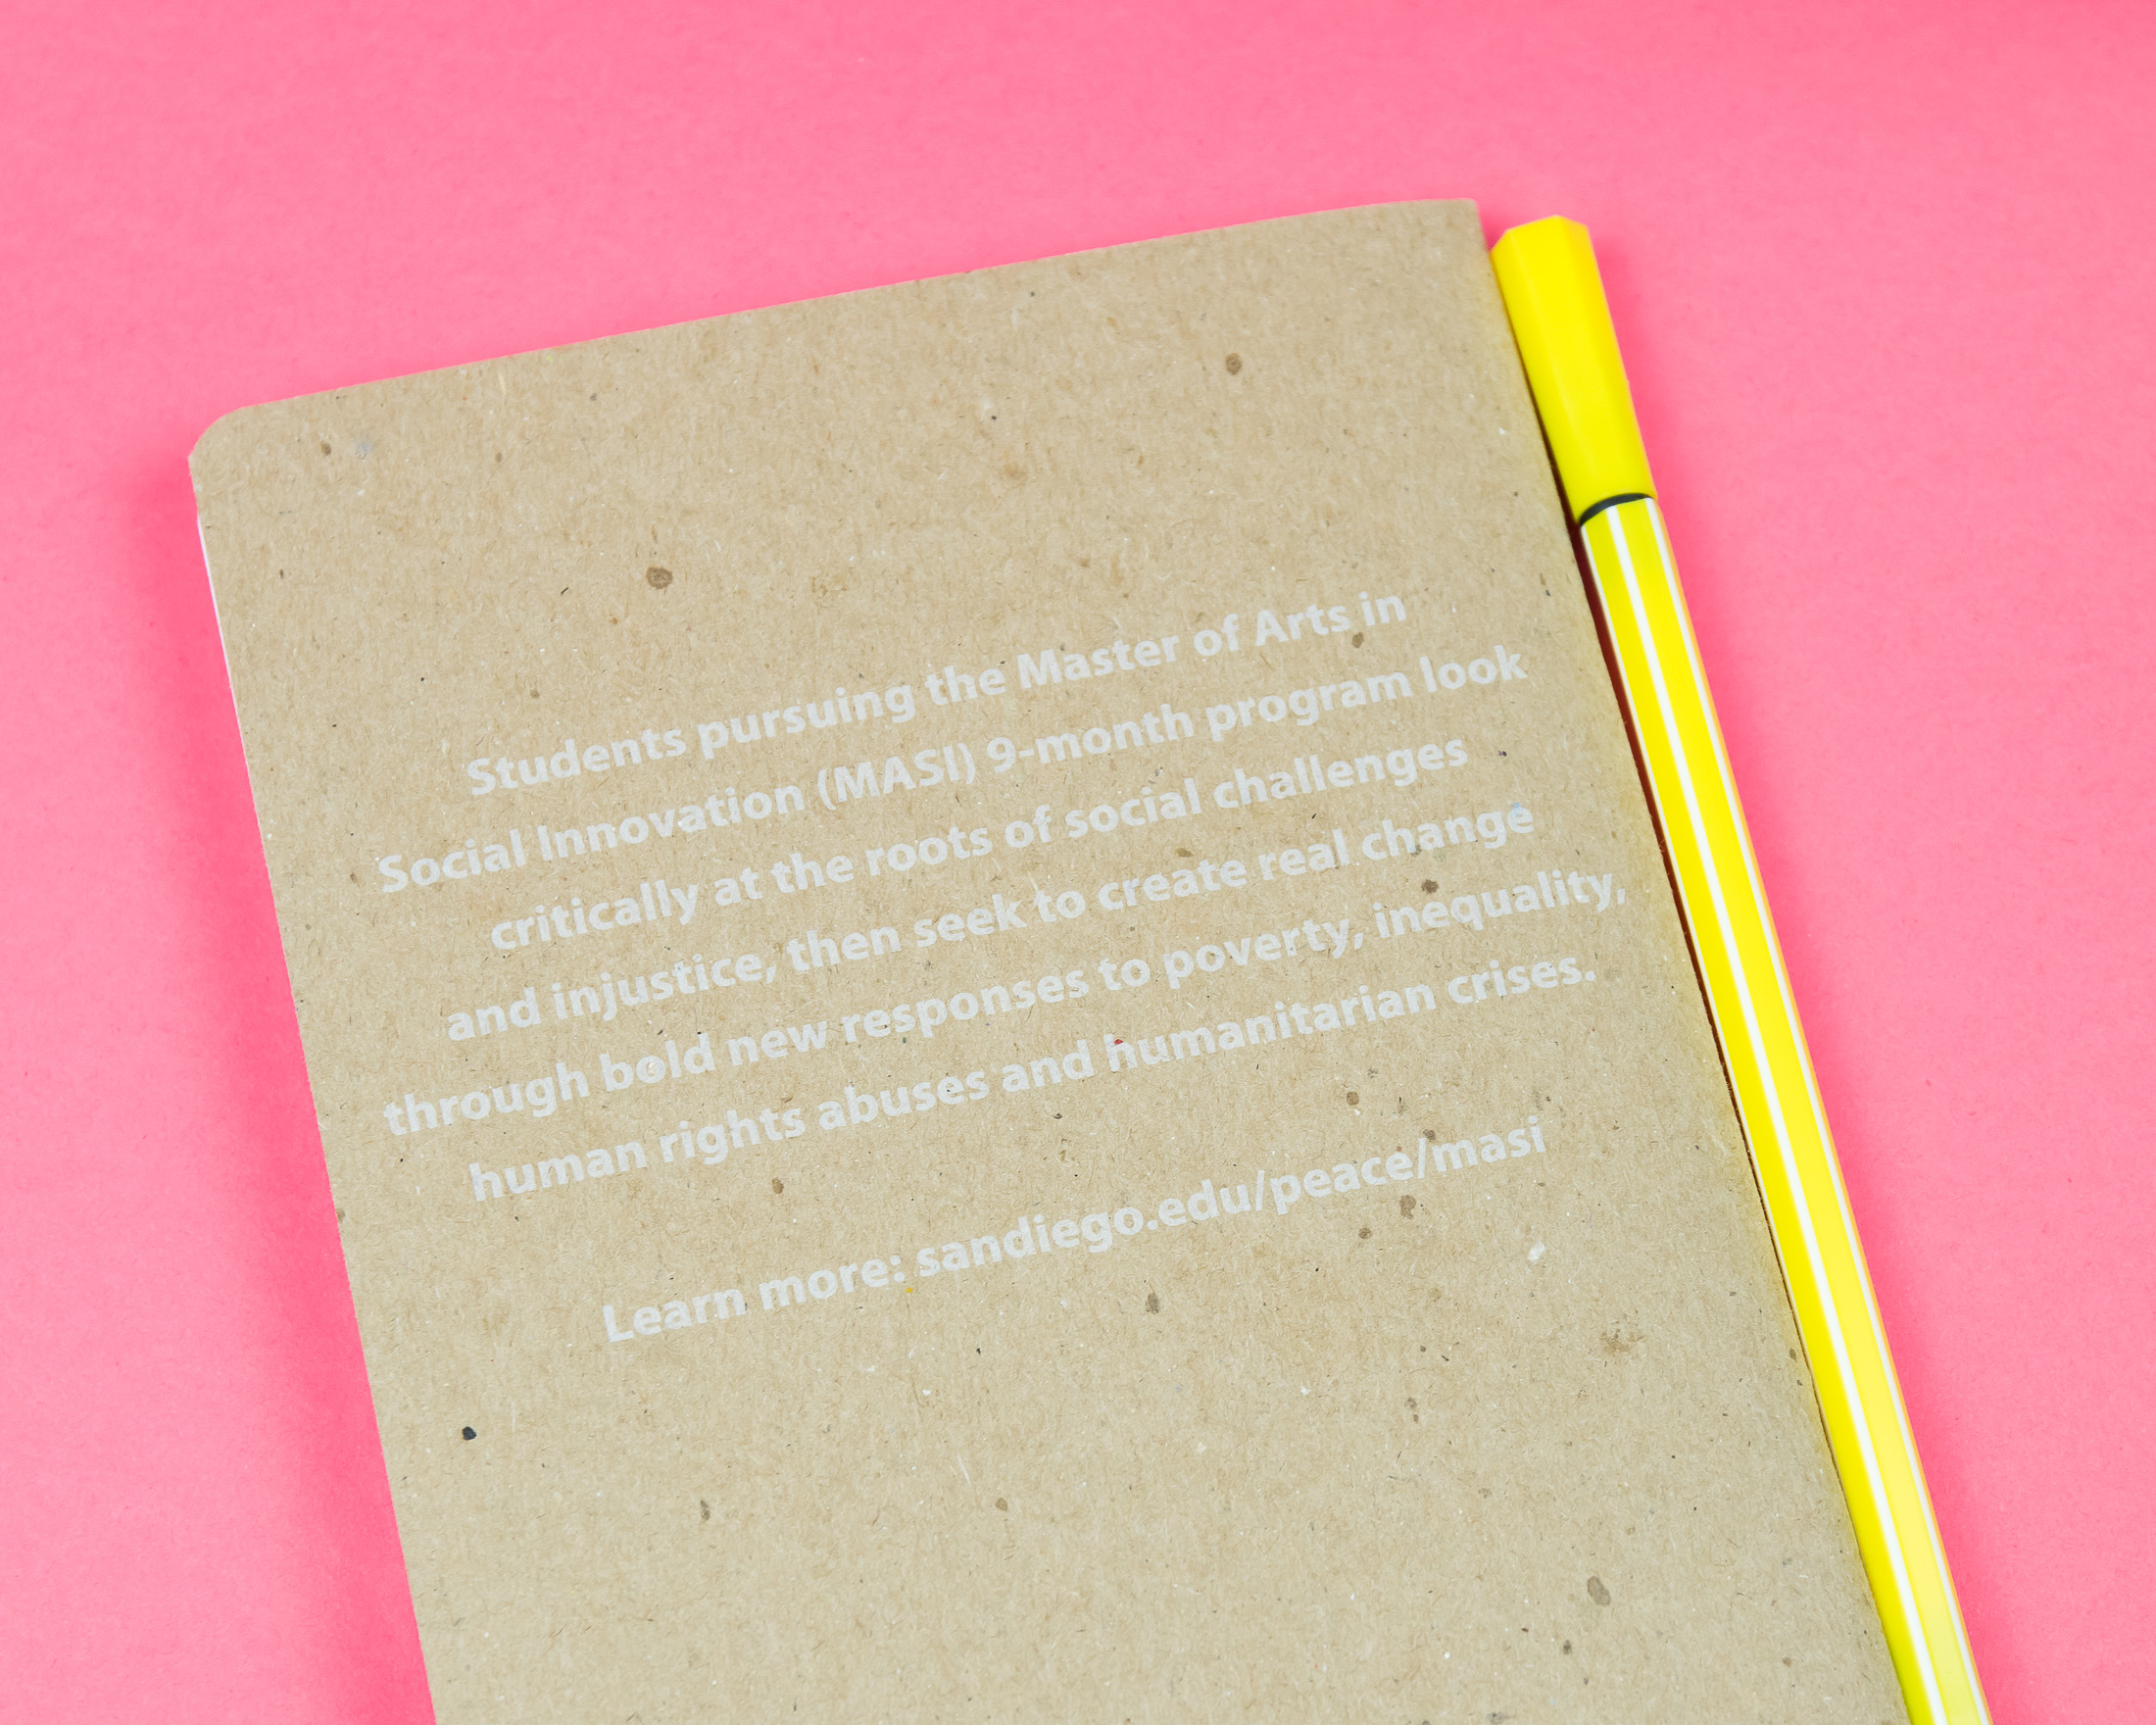 Students pursuing the Master of Arts in
Social Innovation (MASI) 9-month program look
critically at the roots of social challenges
and injustice, then seek to create real change
through bold new responses to poverty, inequality,
human rights abuses and humanitarian crises.
Learn more: sandiego.edu/peace/masi